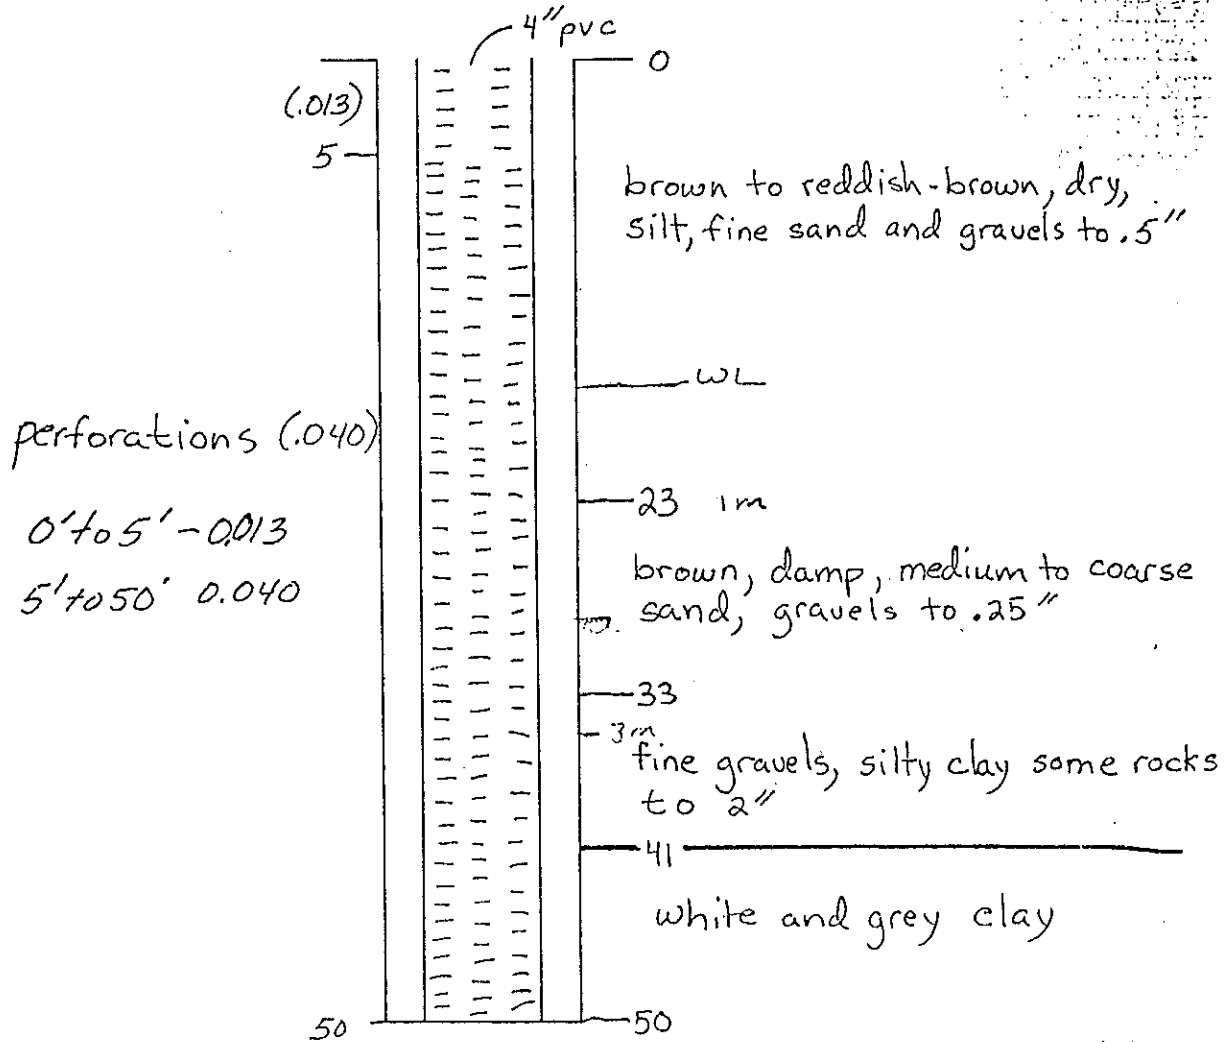 4" pvc
0
(.013)
5
brown to reddish-brown, dry,
silt, fine sand and gravels to .5"
WL
perforations (.040)
23 1m
0' to 5' - 0.013
5' to 50' 0.040
brown, damp, medium to coarse
sand, gravels to .25"
33
3m
fine gravels, silty clay some rocks
to 2"
41
white and grey clay
50
50